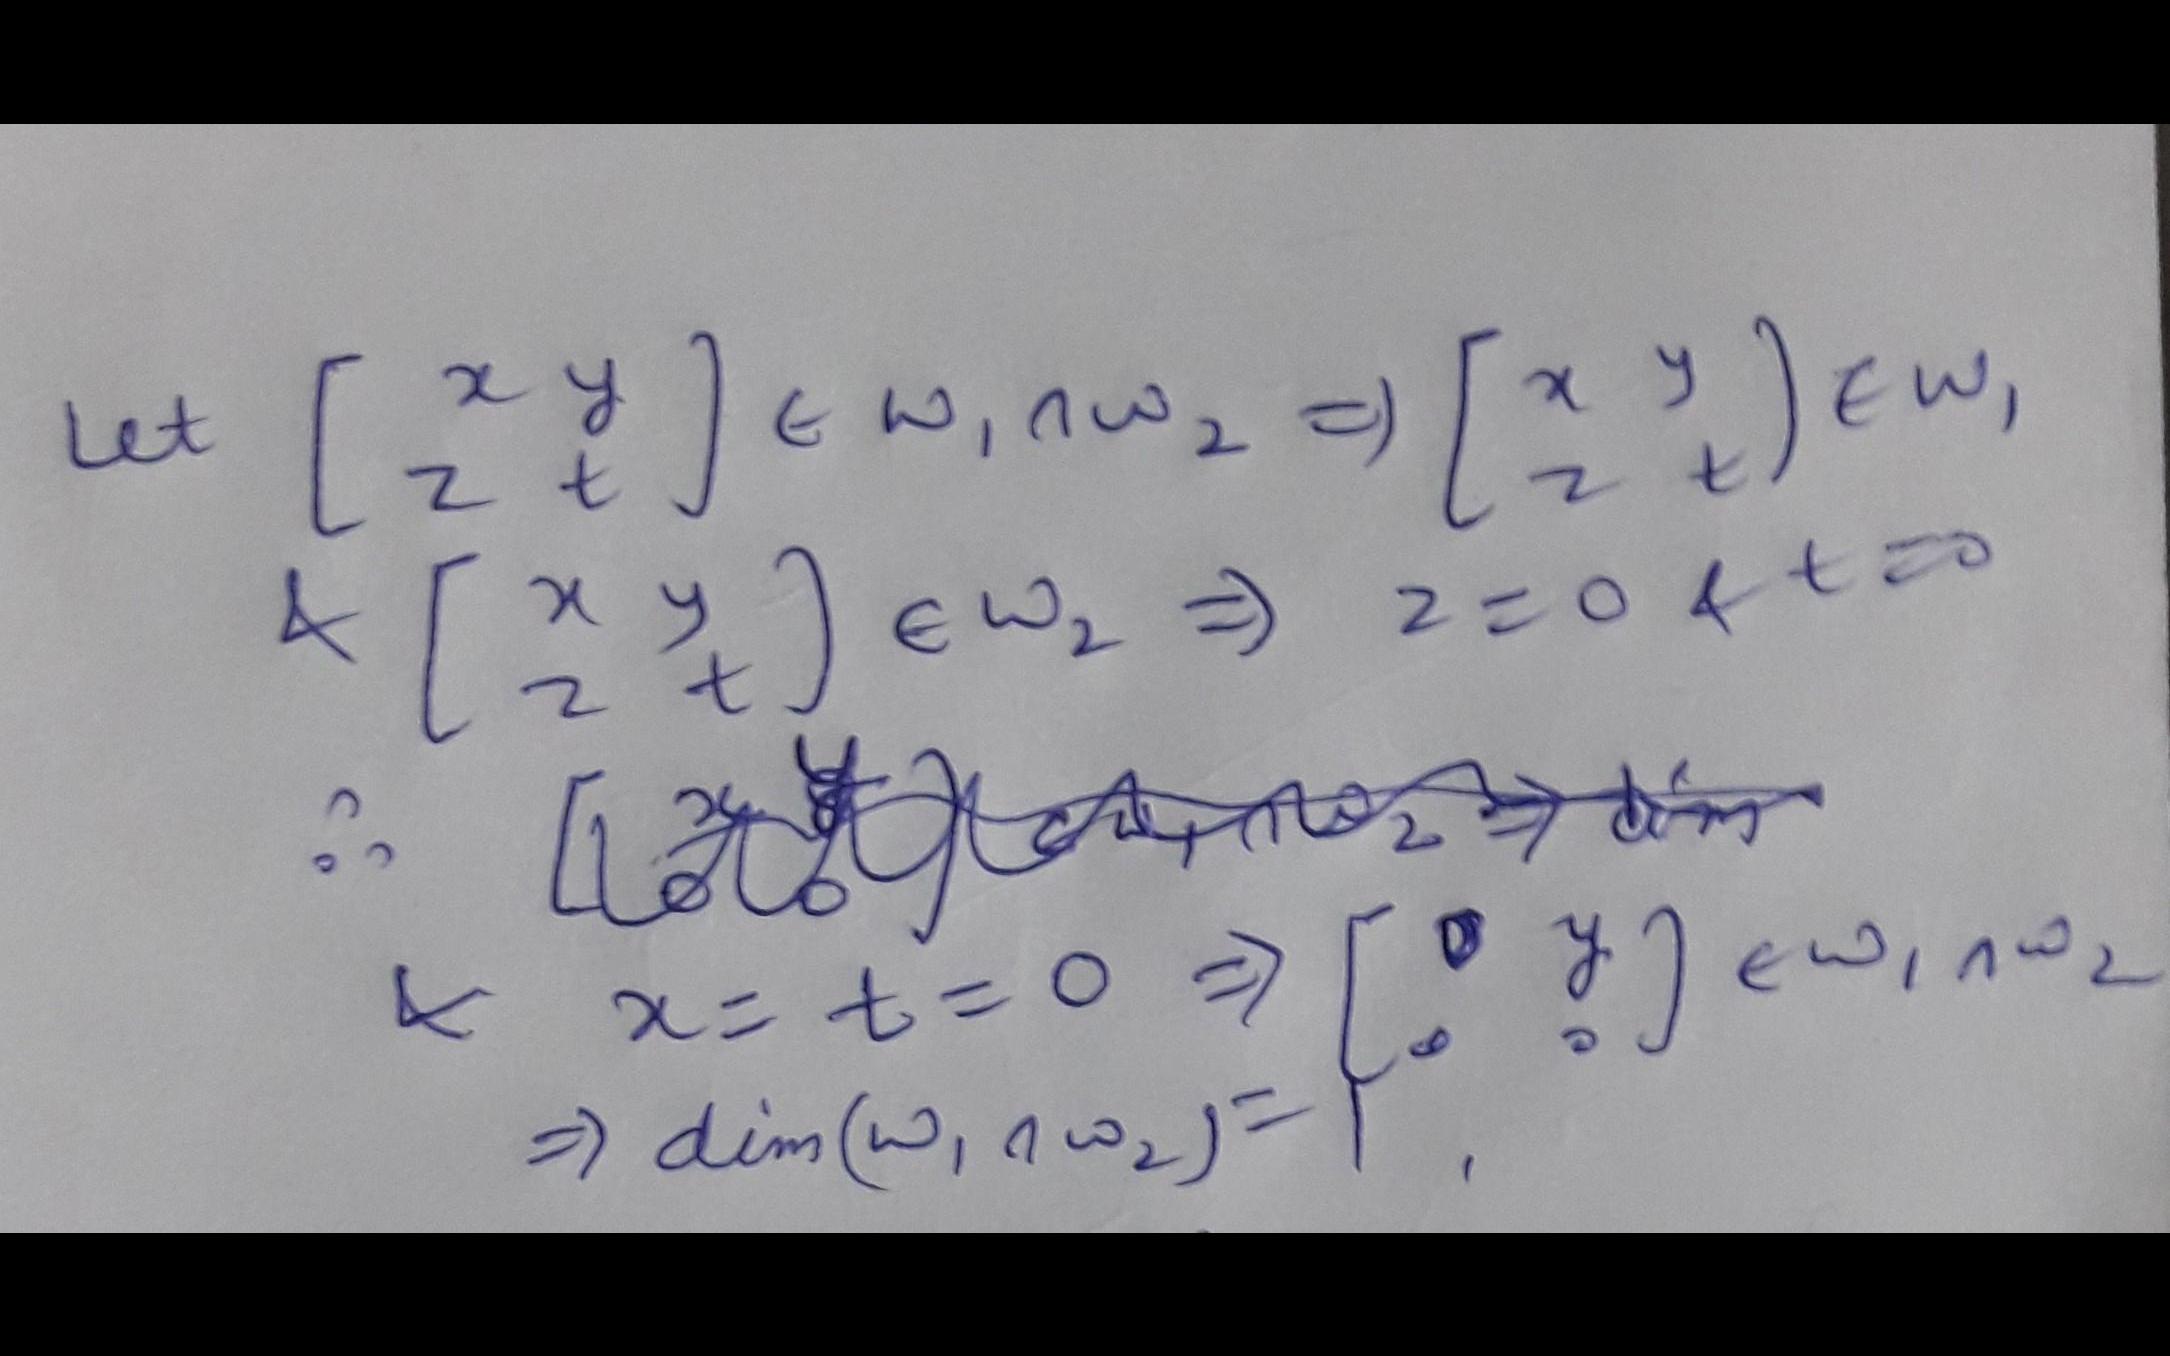 Let [ x y z t ] ∈ W₁ ∩ W₂ ⇒ [ x y z t ] ∈ W₁
& [ x y z t ] ∈ W₂ ⇒ z = 0 & t = 0
∴ [ x y 0 0 ] ∈ W₁ ∩ W₂ ⇒ dim
& x = t = 0 ⇒ [ 0 y 0 0 ] ∈ W₁ ∩ W₂
⇒ dim(W₁ ∩ W₂) = 1 ,